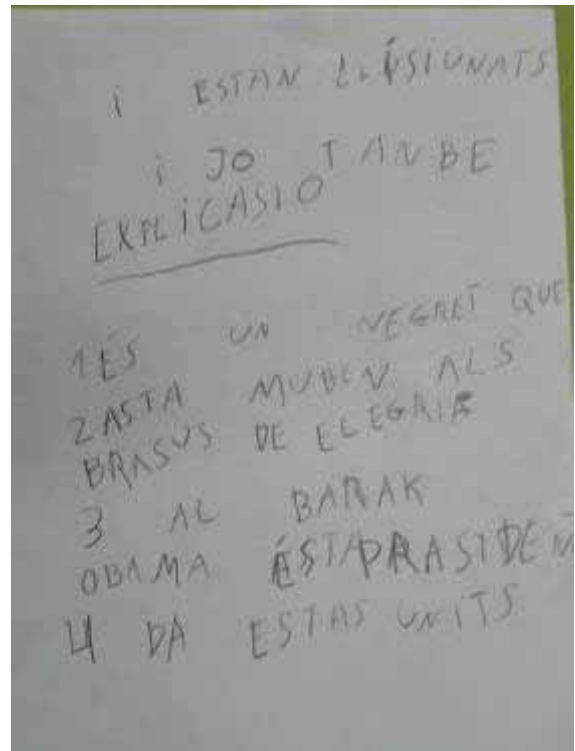 i ESTAN ILÚSIUNATS
i JO TANBE
EXPLICASIO
1 ÉS UN NEGRET QUE
2 ASTA MUBEN ALS
BRASUS DE ELEGRIA
3 AL BARAK
OBAMA ÉSTA PRASIDEN
4 DA ESTAS UNITS